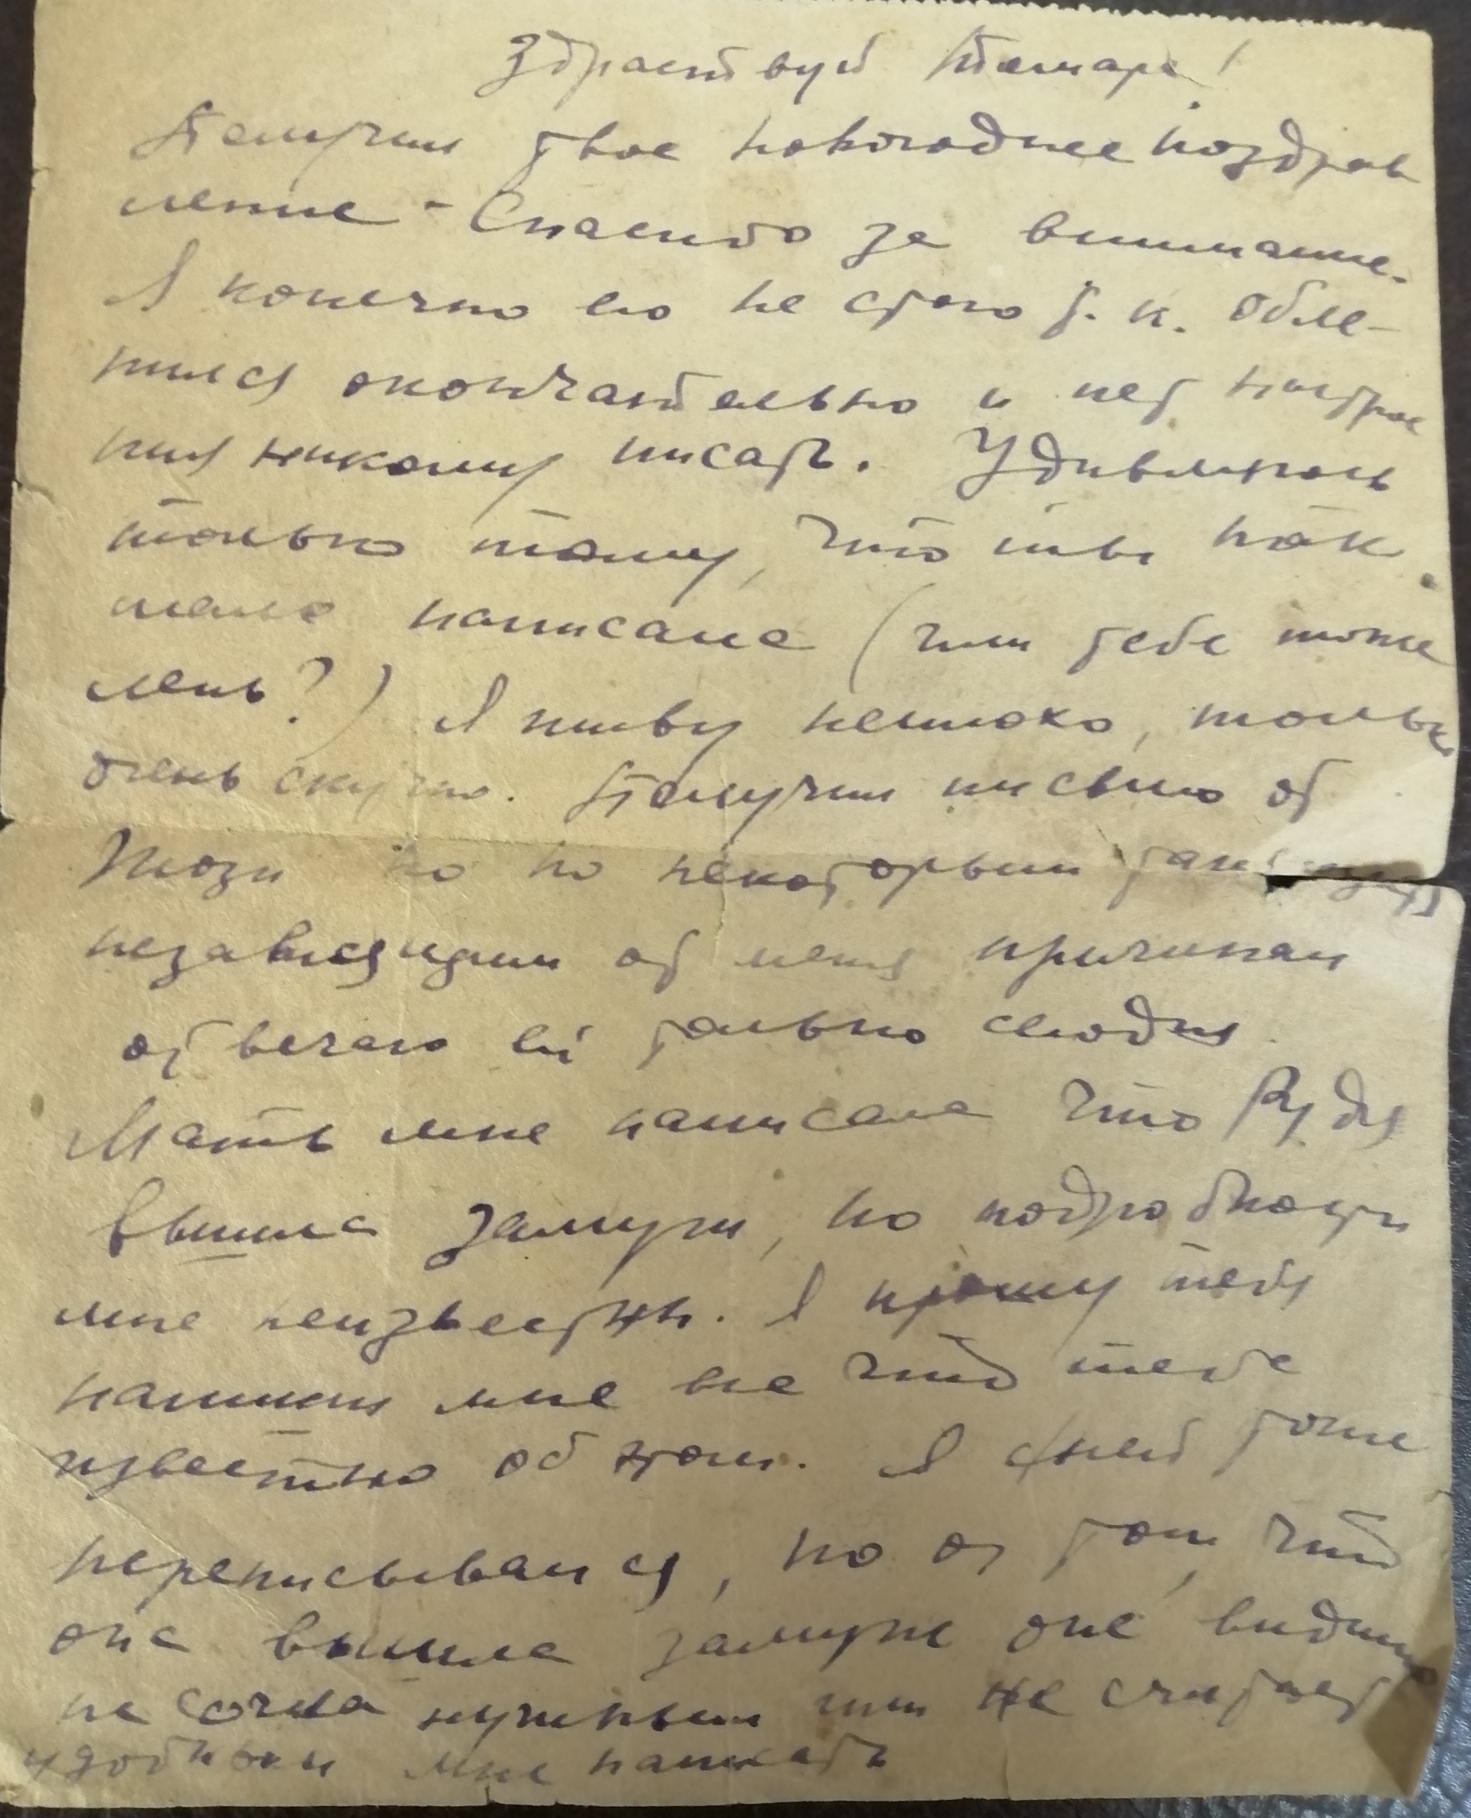 Здраствуй Тамара!
Получил твое новогоднее поздрав
ление - Спасибо за внимание.
Я конечно его не стою т. к. обле-
нился окончательно и нет настрое
ния никому писать. Удивляюсь
только тому, что ты так
мало написала (или тебе тоже
лень?) Я живу неплохо, только
очень скучно. Получил письмо от
Тюзи но по некоторым
независящим от меня причинам
отвечаю ей только сегодня.
Мать мне написала что Рудя
вышла замуж, но подробности
мне неизвестны. Я прошу тебя
напиши мне все что тебе
известно об этом. Я с ней тоже
переписывался, но о том, что
она вышла замуж она видимо
не сочла нужным или не считает
удобным мне написать